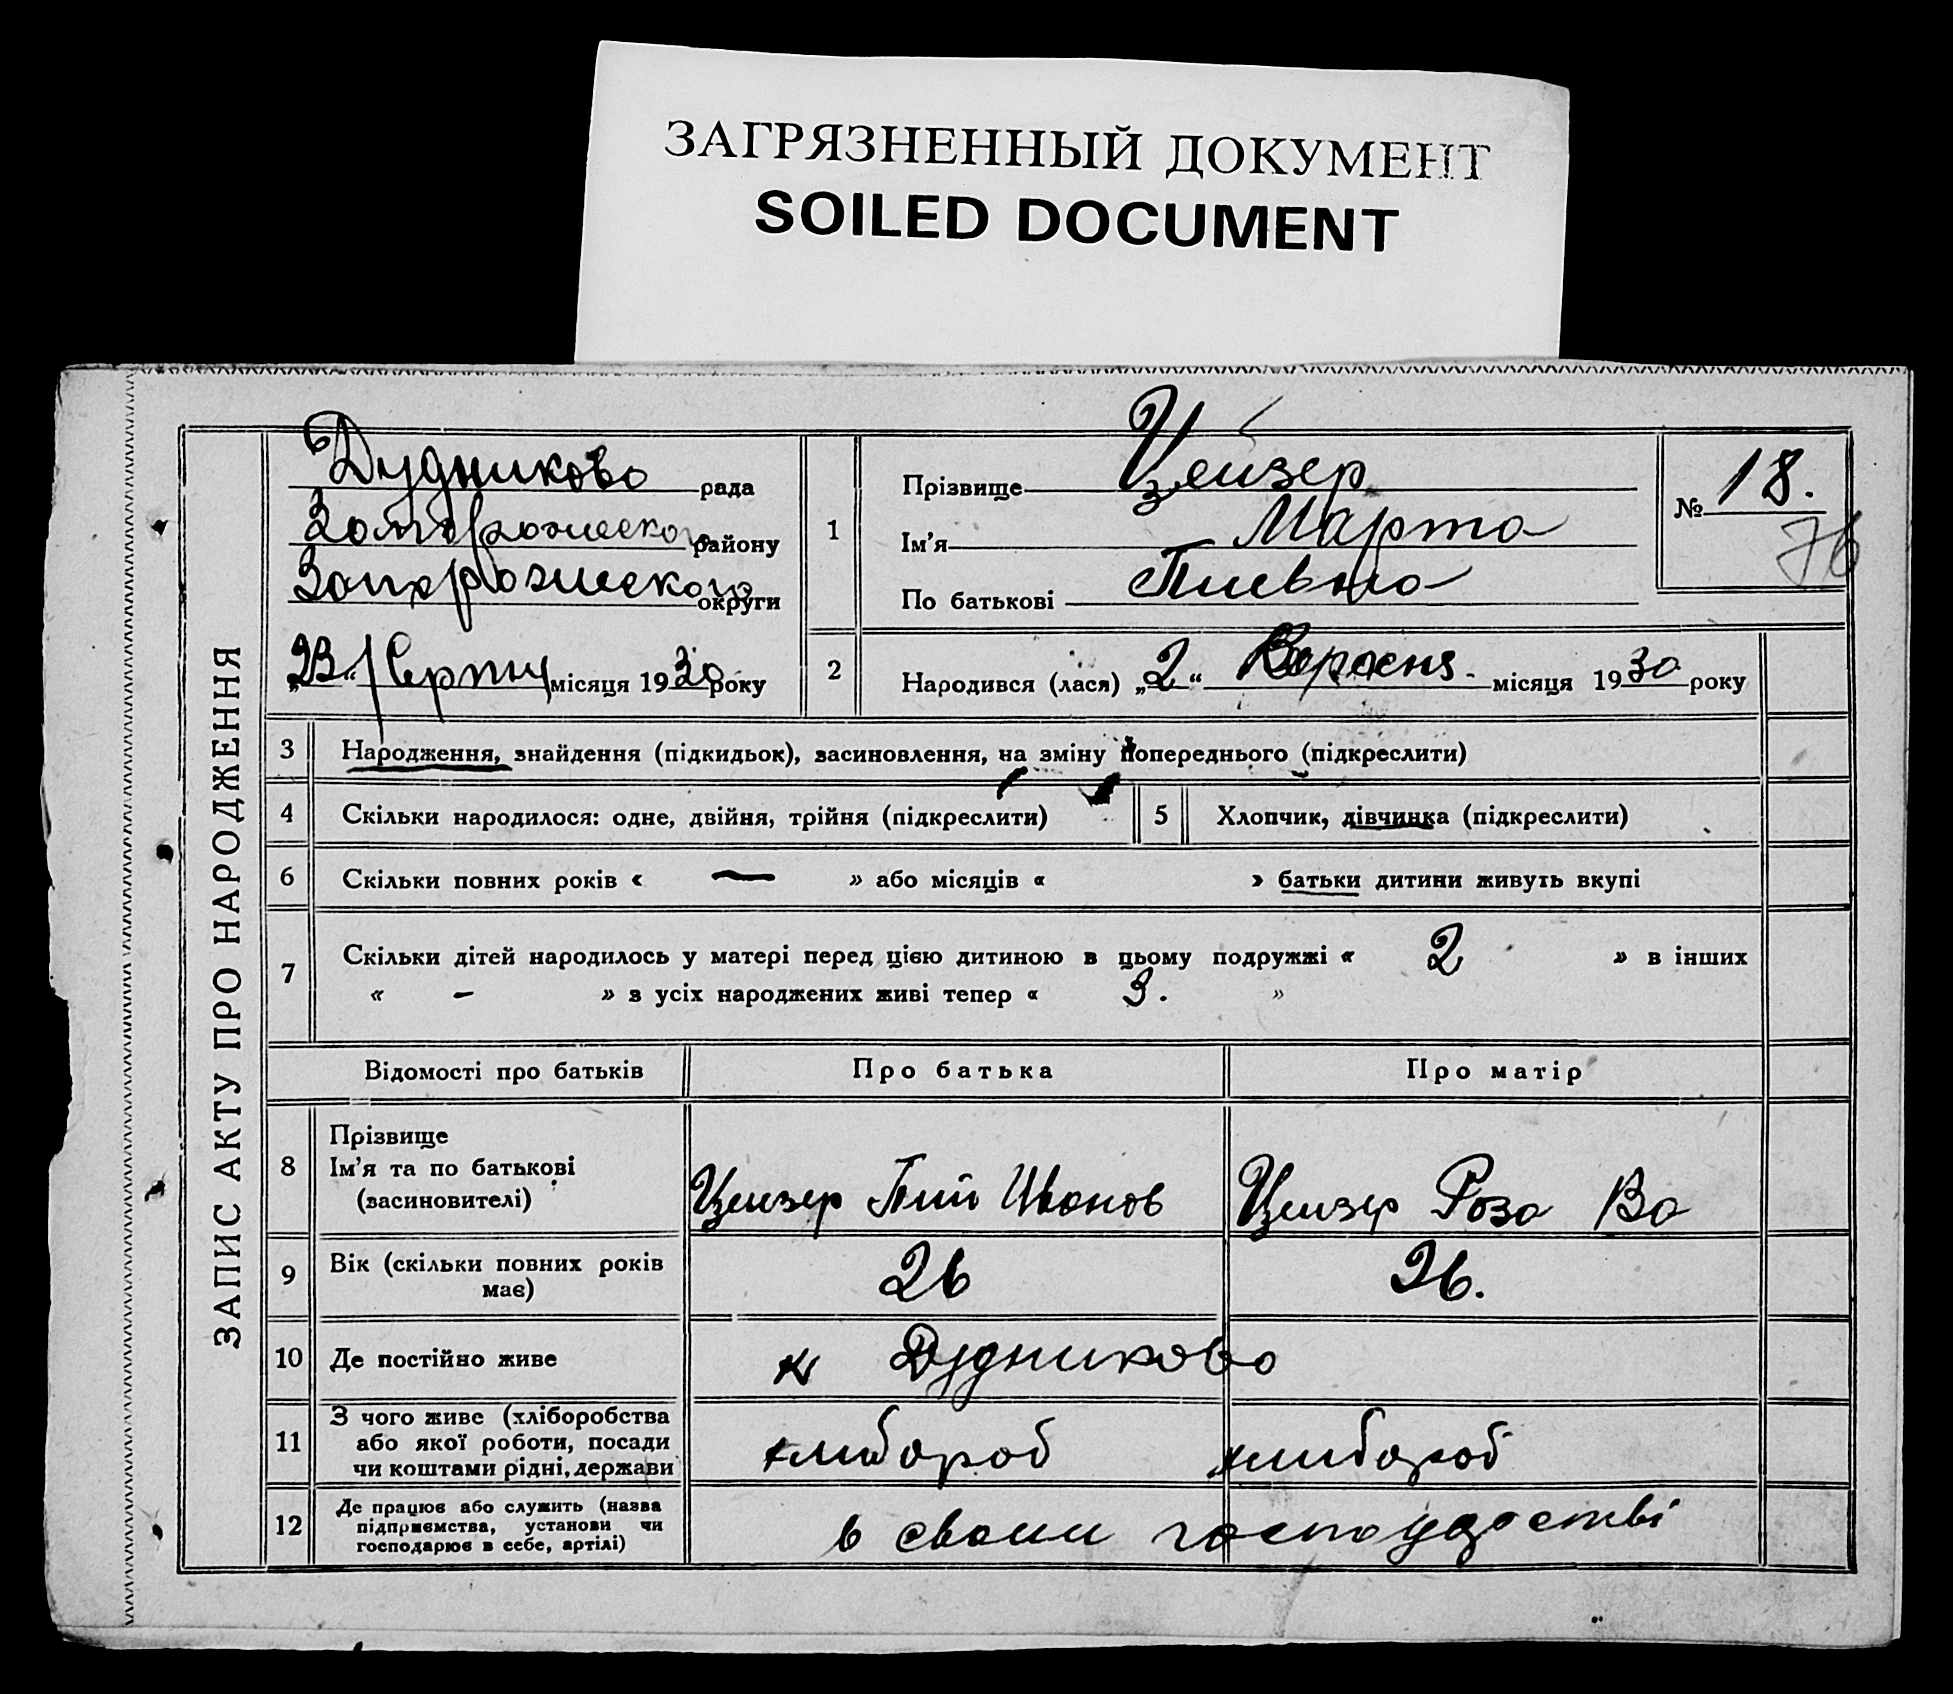 ЗАГРЯЗНЕННЫЙ ДОКУМЕНТ
SOILED DOCUMENT
ЗАПИС АКТУ ПРО НАРОДЖЕННЯ
Дудниково рада
району
Запорожского округи
„23“ Серпня місяця 1930 року
1
Прізвище Цейзер
Ім'я Марта
По батькові Пиевна
№ 18.
76
2
Народився (лася) „2“ місяця 1930 року
3 Народження, знайдення (підкидьок), засиновлення, на зміну попереднього (підкреслити)
4 Скільки народилося: одне, двійня, трійня (підкреслити)
5 Хлопчик, дівчинка (підкреслити)
6 Скільки повних років « — » або місяців « » батьки дитини живуть вкупі
7 Скільки дітей народилось у матері перед цією дитиною в цьому подружжі « 2 » в інших
« - » з усіх народжених живі тепер « 3. »
Відомості про батьків Про батька Про матір
8 Прізвище
Ім'я та по батькові
(засиновителі)
Цейзер Пий Иванов Цейзер Роза Ва
9 Вік (скільки повних років
має)
26 26.
10 Де постійно живе к Дудниково
11 З чого живе (хліборобства
або якої роботи, посади
чи коштами рідні, держави
хлибороб хлибороб
12 Де працює або служить (назва
підприємства, установи чи
господарює в себе, артілі)
в своим господарстві